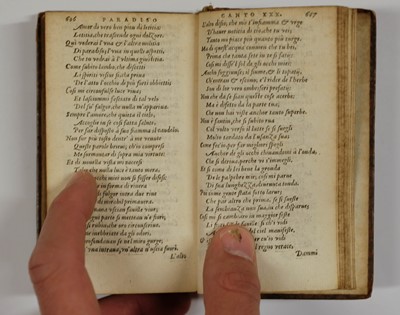 PARADISO
Amor di vero ben pien di letitia,
Letitia, che trascende ogni dolzore.
Qui vederai l'una & l'altra militia
Di paradiso, l'una in quelli aspetti,
Che tu vedrai à l'ultima giustitia.
Come subito lampo, che discetti
Li spiriti visivi; si che priva
De l'atto l'occhio di più forti obbietti;
Cosi mi circunfulse luce viva;
Et lasciommi fasciato di tal velo
Del suo fulgor, che nulla m'appariva.
Sempre l'amore, che queta il cielo,
Accoglie in se cosi fatta salute,
Per far disposto à sua fiamma il candelo.
Non fur più tosto dentr'à me venute
Queste parole brevi, ch'io compresi
Me sormontar di sopra mia virtute:
Et di novella vista mi raccesi
Tale, che nulla luce è tanto mera,
che gli occhi miei non si fosser difesi:
in forma di rivera
di fulgore intra due rive
di mirabil primavera.
uscian faville vive;
si mettean ne fiori,
rubin, che oro circunscrive.
inebriate da gli odori,
profundavan se nel miro gurge;
una intrava, un'altra n'uscia fuori.
L'alto
CANTO XXX.
L'alto disio, che mo t'infiamma & urge
D'haver notitia di cio che tu vei;
Tanto mi piace più, quanto più turge.
Ma di quest'acqua convien che tu bei,
Prima che tanta sete in te si satii:
Cosi mi disse'l sol de gli occhi miei:
Anche soggiunse, il fiume, & li topatii,
Ch'entrano & escono, e'l rider de l'herbe
Son di lor vero ombriferi prefatii:
Non che da se sian queste cose acerbe:
Ma è difetto da la parte tua;
Che non hai viste anchor tanto superbe.
Non è fantin, che si subito rua
Col volto verso il latte se si svegli
Molto tardato da l'usanza sua;
Come fec'io per far migliori spegli
Anchor de gli occhi chinandomi à l'onda,
Che si deriva, perche vi s'immegli.
Et si come di lei bevve la gronda
De le palpebre mie, cosi mi parve
Di sua lunghezza divenuta tonda.
Poi come gente stata sotto larve;
Che par altro che prima, se si sveste
La sembianza non sua, in che disparve;
Cosi mi si cambiaro in maggior feste
Li fiori & le faville, si ch'i vidi
le corti del ciel manifeste.
ch'io vidi
regno verace,
Dammi